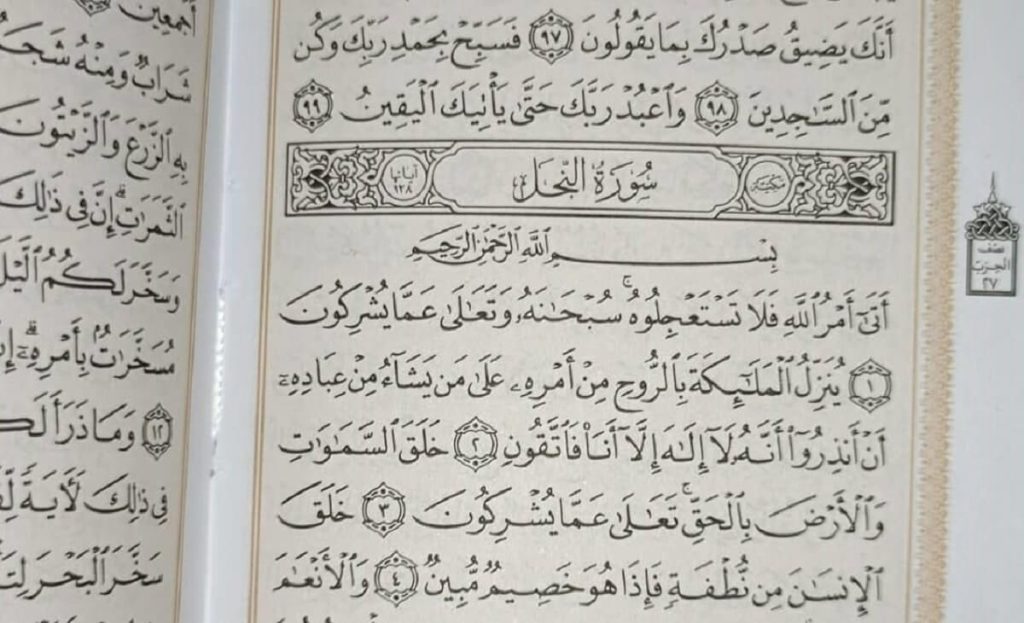 أَنَّكَ يَضِيقُ صَدْرُكَ بِمَا يَقُولُونَ ٩٧ فَسَبِّحْ بِحَمْدِ رَبِّكَ وَكُن
مِّنَ ٱلسَّٰجِدِينَ ٩٨ وَٱعْبُدْ رَبَّكَ حَتَّىٰ يَأْتِيَكَ ٱلْيَقِينُ ٩٩
مكية سُورَةُ النَّحْلِ آياتها ١٢٨
بِسْمِ ٱللَّهِ ٱلرَّحْمَٰنِ ٱلرَّحِيمِ
أَتَىٰٓ أَمْرُ ٱللَّهِ فَلَا تَسْتَعْجِلُوهُ ۚ سُبْحَٰنَهُۥ وَتَعَٰلَىٰ عَمَّا يُشْرِكُونَ
١ يُنَزِّلُ ٱلْمَلَٰٓئِكَةَ بِٱلرُّوحِ مِنْ أَمْرِهِۦ عَلَىٰ مَن يَشَآءُ مِنْ عِبَادِهِۦٓ
أَنْ أَنذِرُوٓا۟ أَنَّهُۥ لَآ إِلَٰهَ إِلَّآ أَنَا۠ فَٱتَّقُونِ ٢ خَلَقَ ٱلسَّمَٰوَٰتِ
وَٱلْأَرْضَ بِٱلْحَقِّ ۚ تَعَٰلَىٰ عَمَّا يُشْرِكُونَ ٣ خَلَقَ
ٱلْإِنسَٰنَ مِن نُّطْفَةٍ فَإِذَا هُوَ خَصِيمٌ مُّبِينٌ ٤ وَٱلْأَنْعَٰمَ
نصف
الحزب
٢٧
أَجْمَعِينَ
شَرَابٌ وَمِنْهُ شَجَ
بِهِ ٱلزَّرْعَ وَٱلزَّيْتُونَ
ٱلثَّمَرَٰتِ ۗ إِنَّ فِى ذَٰلِكَ
وَسَخَّرَ لَكُمُ ٱلَّيْلَ
مُسَخَّرَٰتٌۢ بِأَمْرِهِۦٓ ۗ إِ
١٢ وَمَا ذَرَأَ لَكُ
فِى ذَٰلِكَ لَءَايَةً لِّقَ
سَخَّرَ ٱلْبَحْرَ لِتَ